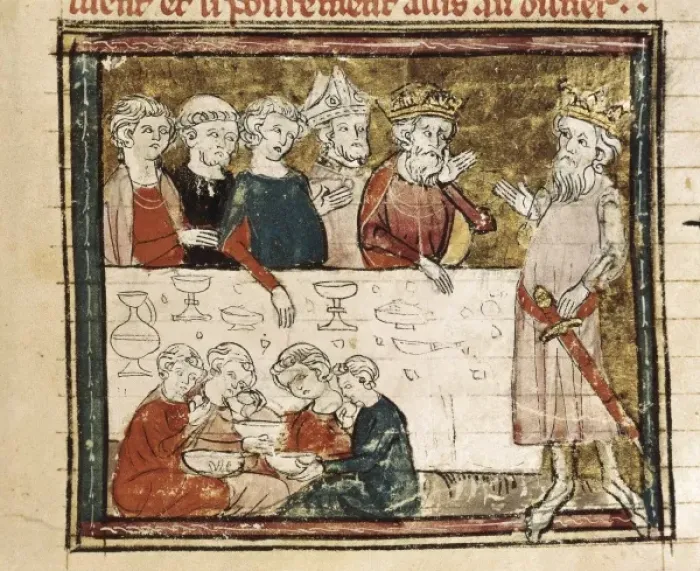 ment et si pourement assis au disner